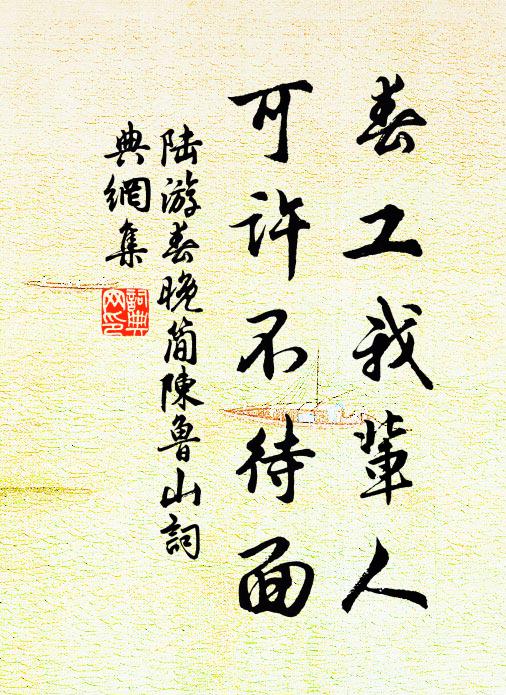 春工我輩人
可許不待面
陸游春晚簡陳魯山詞
典網集
詞典
网印